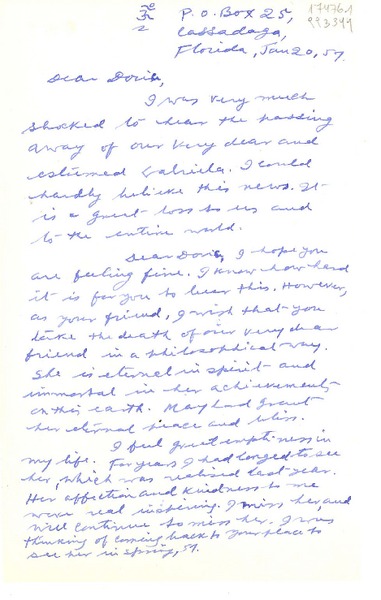 P.O. Box 25,
Cassadaga,
Florida, Jan 20, 57.
174761
Dear Doris,
I was very much
shocked to hear the passing
away of our very dear and
esteemed Gabriela. I could
hardly believe this news. It
is a great loss to us and
to the entire world.
Dear Doris, I hope you
are feeling fine. I know how hard
it is for you to bear this. However,
as your friend, I wish that you
take the death of our very dear
friend in a philosophical way.
She is eternal in spirit and
immortal in her achievements
on this earth. May God grant
her eternal peace and bliss.
I feel great emptiness in
my life. For years I had longed to see
her, which was realised last year.
Her affection and kindness to me
were real inspiring. I miss her, and
will continue to miss her. I was
thinking of coming back to your place to
see her in spring, 57.